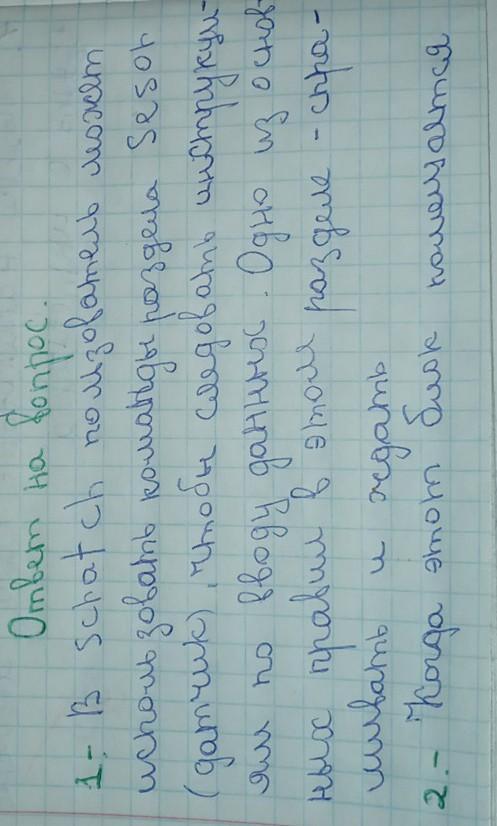 Ответ на вопрос.
1.- В Scratch пользователь может
использовать команды раздела Sesor
(датчик), чтобы следовать инструкци-
ям по вводу данных. Одно из основ-
ных правил в этом разделе - спра-
шивать и ждать
2.- Когда этот блок помещается